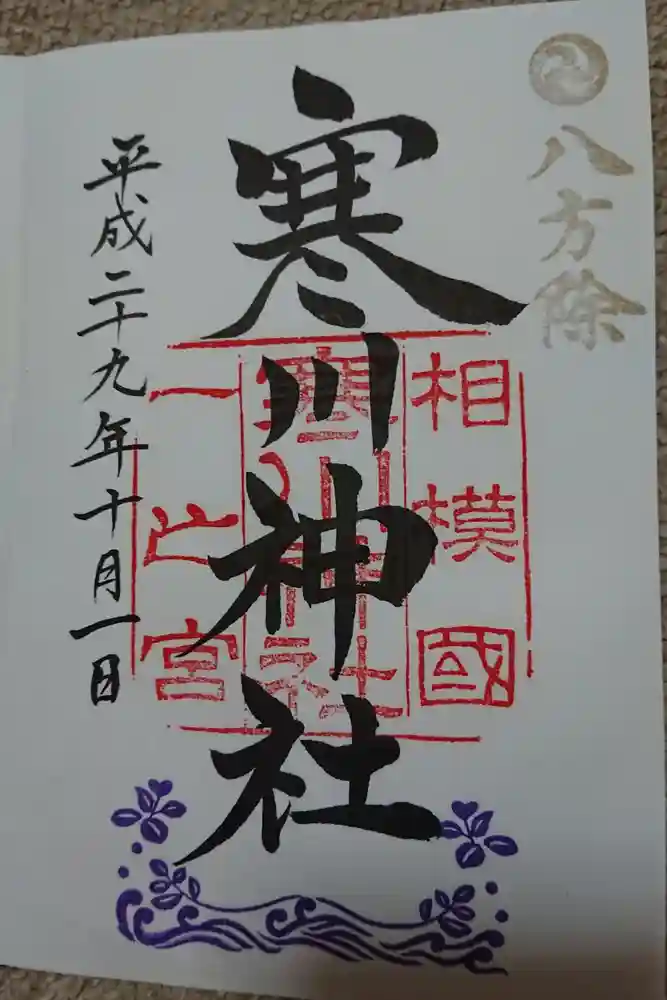 八方除
寒川神社
相模國
寒川神社
一之宮
平成二十九年十月一日